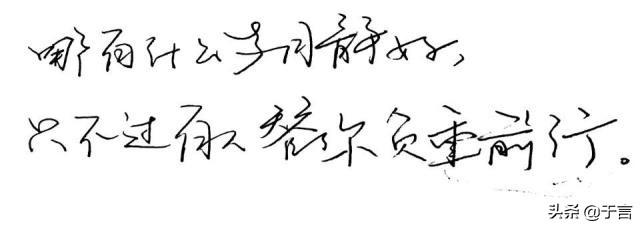 哪有什么岁月静好，
只不过有人替你负重前行。
头条 @于言